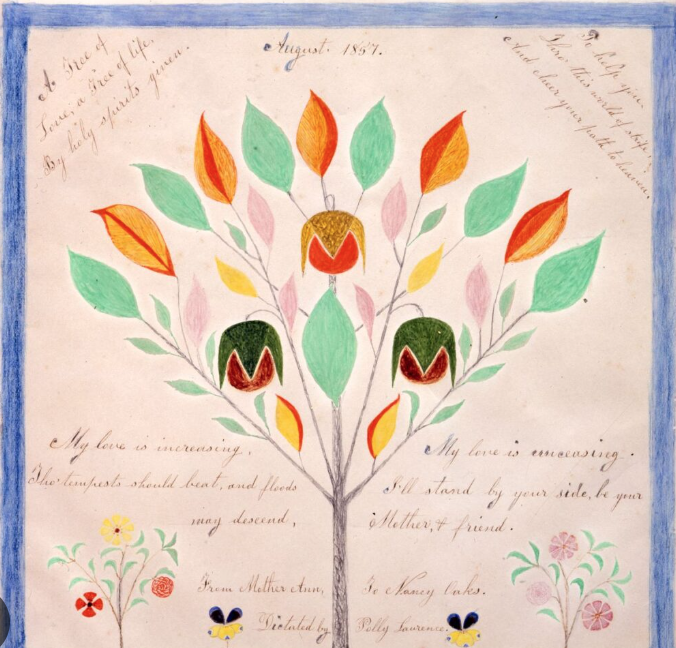 A Tree of
Love, a Tree of life.
By holy spirits given.
August. 1857.
To help you
Thro' this world of
And cheer your path to heaven.
My love is increasing,
Tho' tempests should beat, and floods
may descend,
My love is unceasing.
I'll stand by your side, be your
Mother, & friend.
From Mother Ann,
To Nancy Oaks.
Dictated by
Polly Laurence.